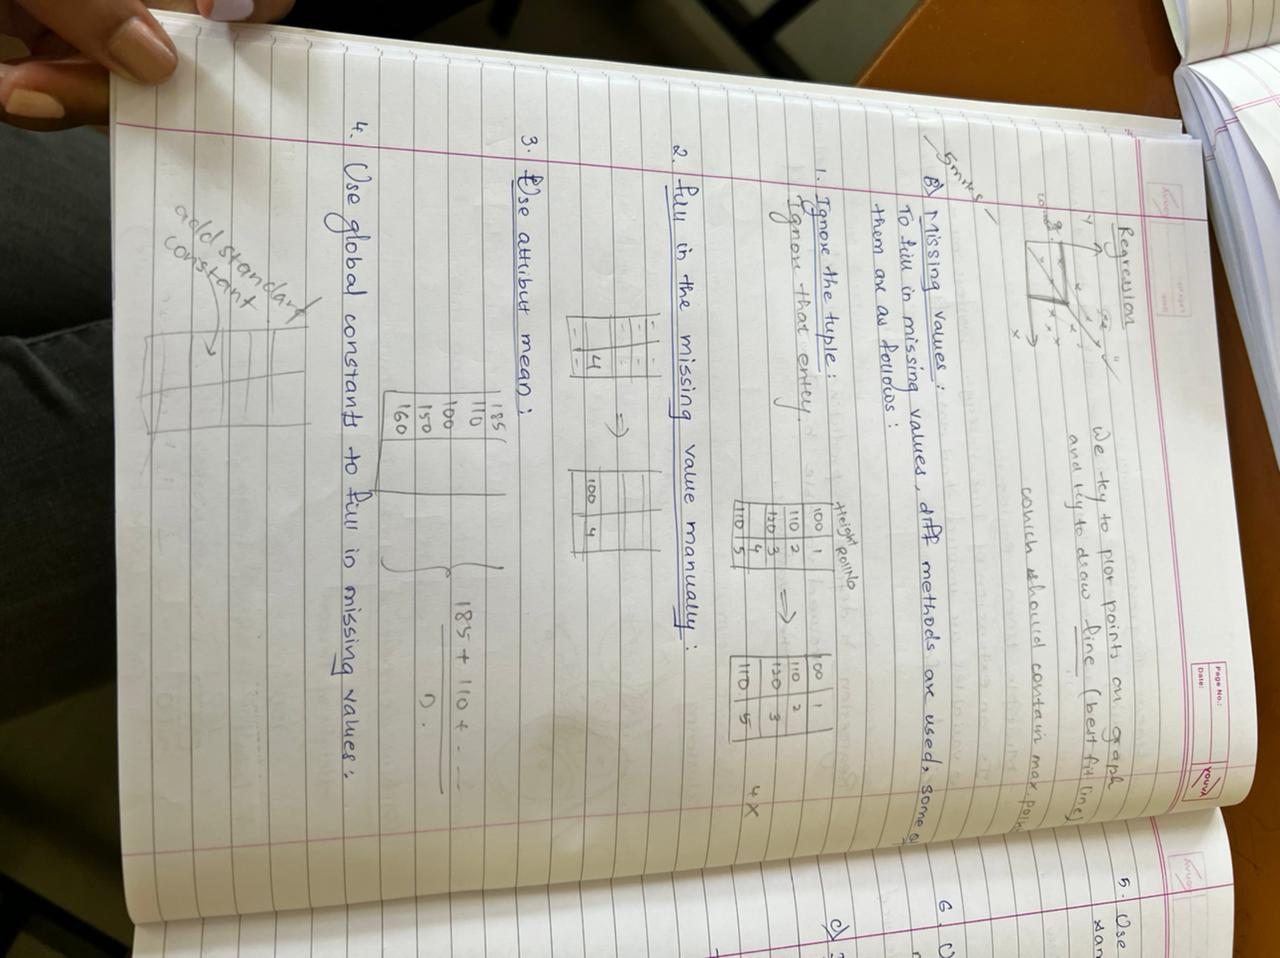 Page No.:
Date:
YOUVA
Regression
Y
x
We try to plot points on graph
and try to draw line (best fit line)
which should contain max.
5 mrks
B) Missing values :
To fill in missing values, diff methods are used, some of
them are as follows :
1. Ignore the tuple :
Ignore that entry.
Height RollNo
100 1
110 2
120 3
4
110 5
⇒
100 1
110 2
120 3
110 5
4 X
2. fill in the missing value manually :
4
⇒
100 4
3. Use attribut mean :
185
110
100
150
160
185 + 110 + - --
n.
4. Use global constants to fill in missing values :
add standard
constant
5. Use
6.
c)